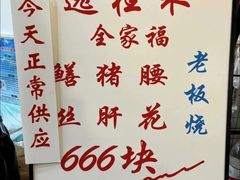 今天正常供应
全家福
鳝猪腰
丝肝花
老板烧
666块